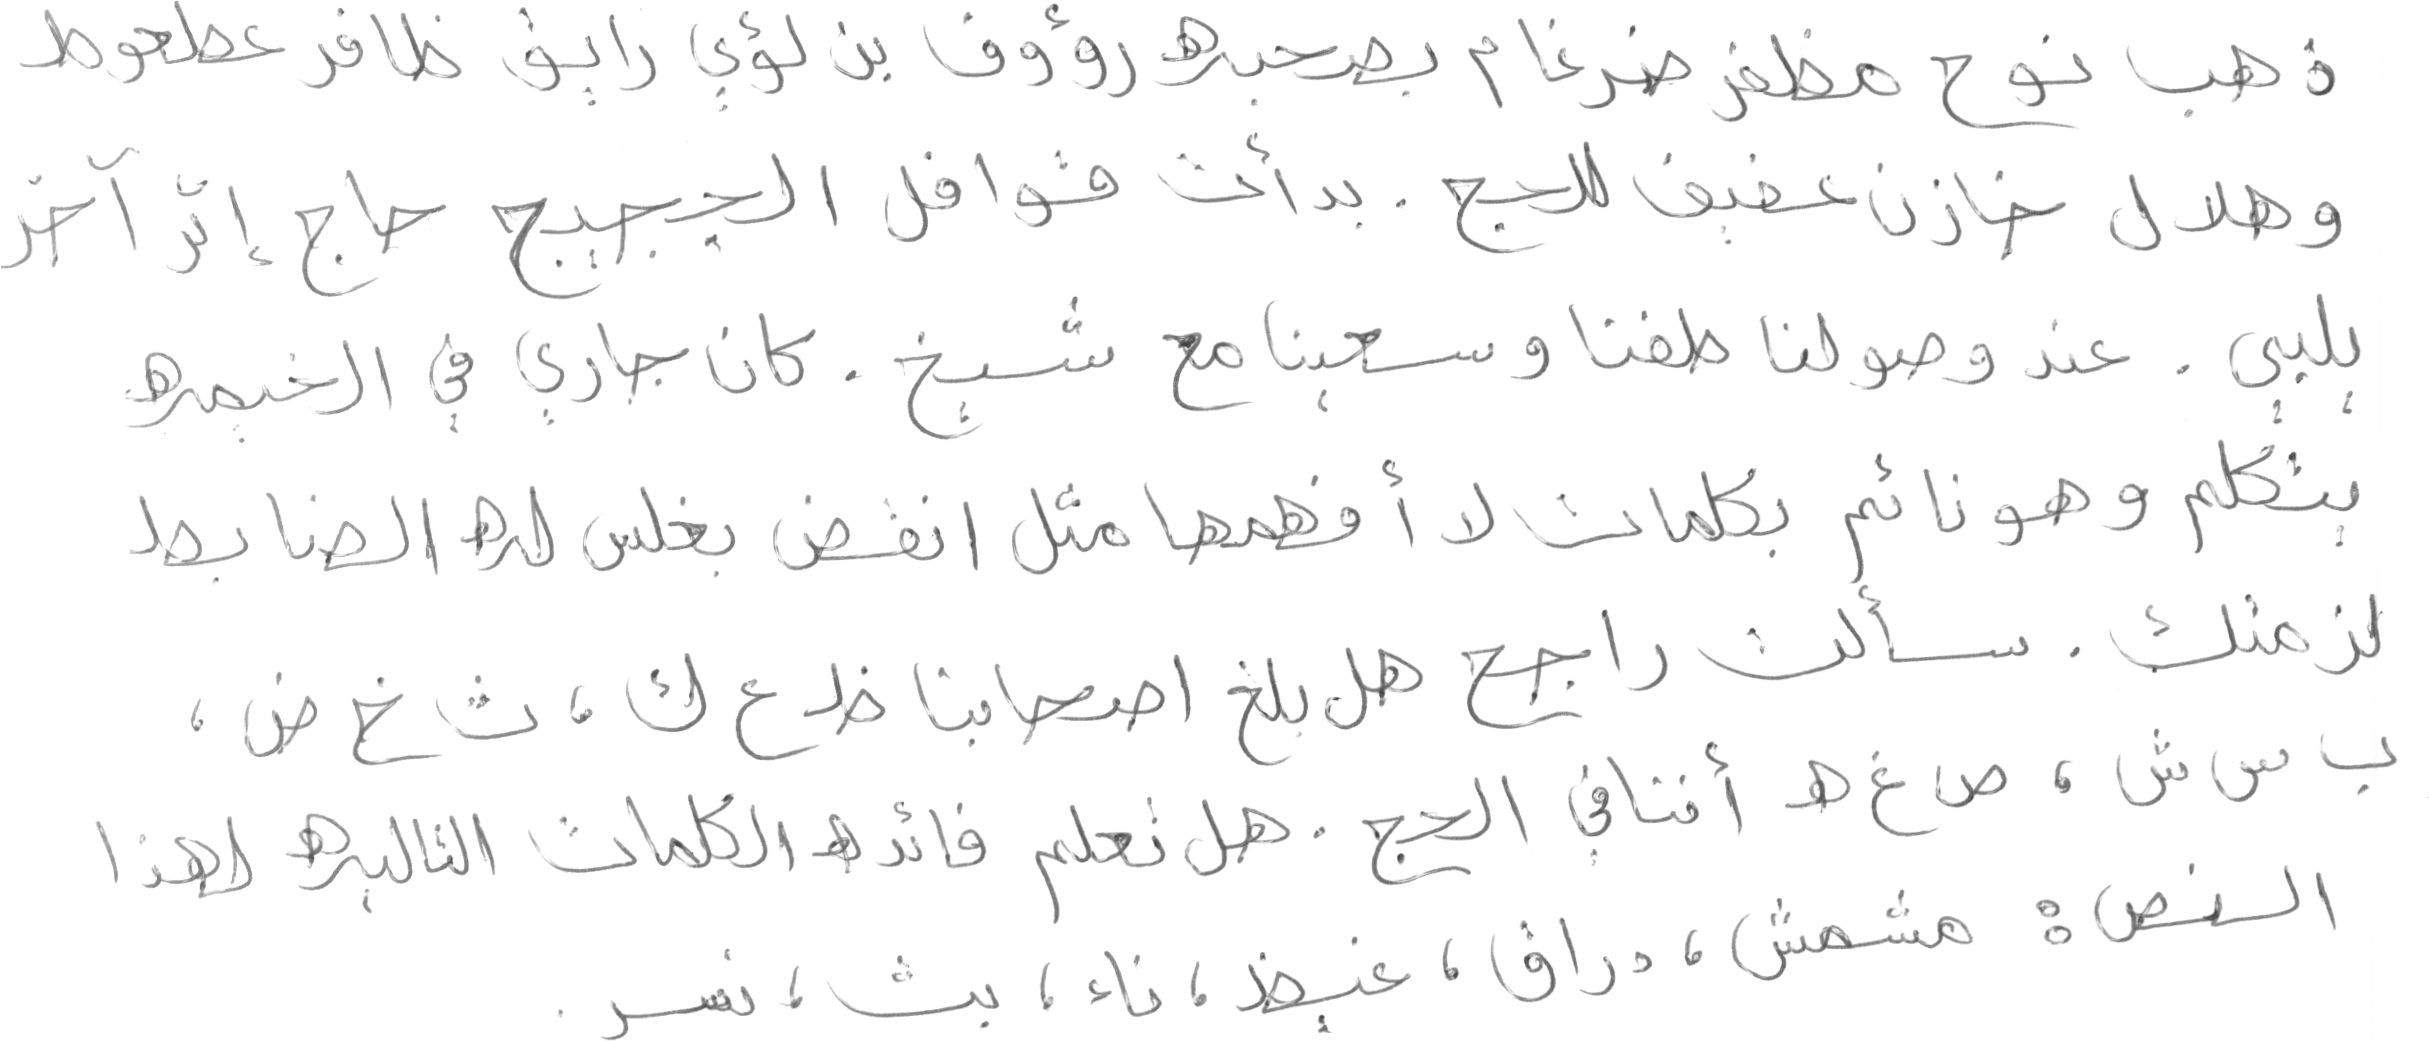 ذهب نوح مظفر ضرغام بصحبه رؤوف بن لؤي رايق ظافر عطعوط
وهلال خازن عفيف للحج . بدأت قوافل الحجيج حاج إثر آخر
يلبي . عند وصولنا طفنا وسعينا مع شيخ . كان جاري في الخيمه
يتكلم وهو نائم بكلمات لا أفهمها مثل انقض بغلس له الضابط
لزمتك . سألت راجح هل بلغ اصحابنا ظ ع ك ، ث خ ض ،
ب س ش ، ص غ ه أننا في الحج . هل تعلم فائده الكلمات التاليه لهذا
النص : مشمش ، دراق ، غيظ ، ناء ، بث ، نسر .